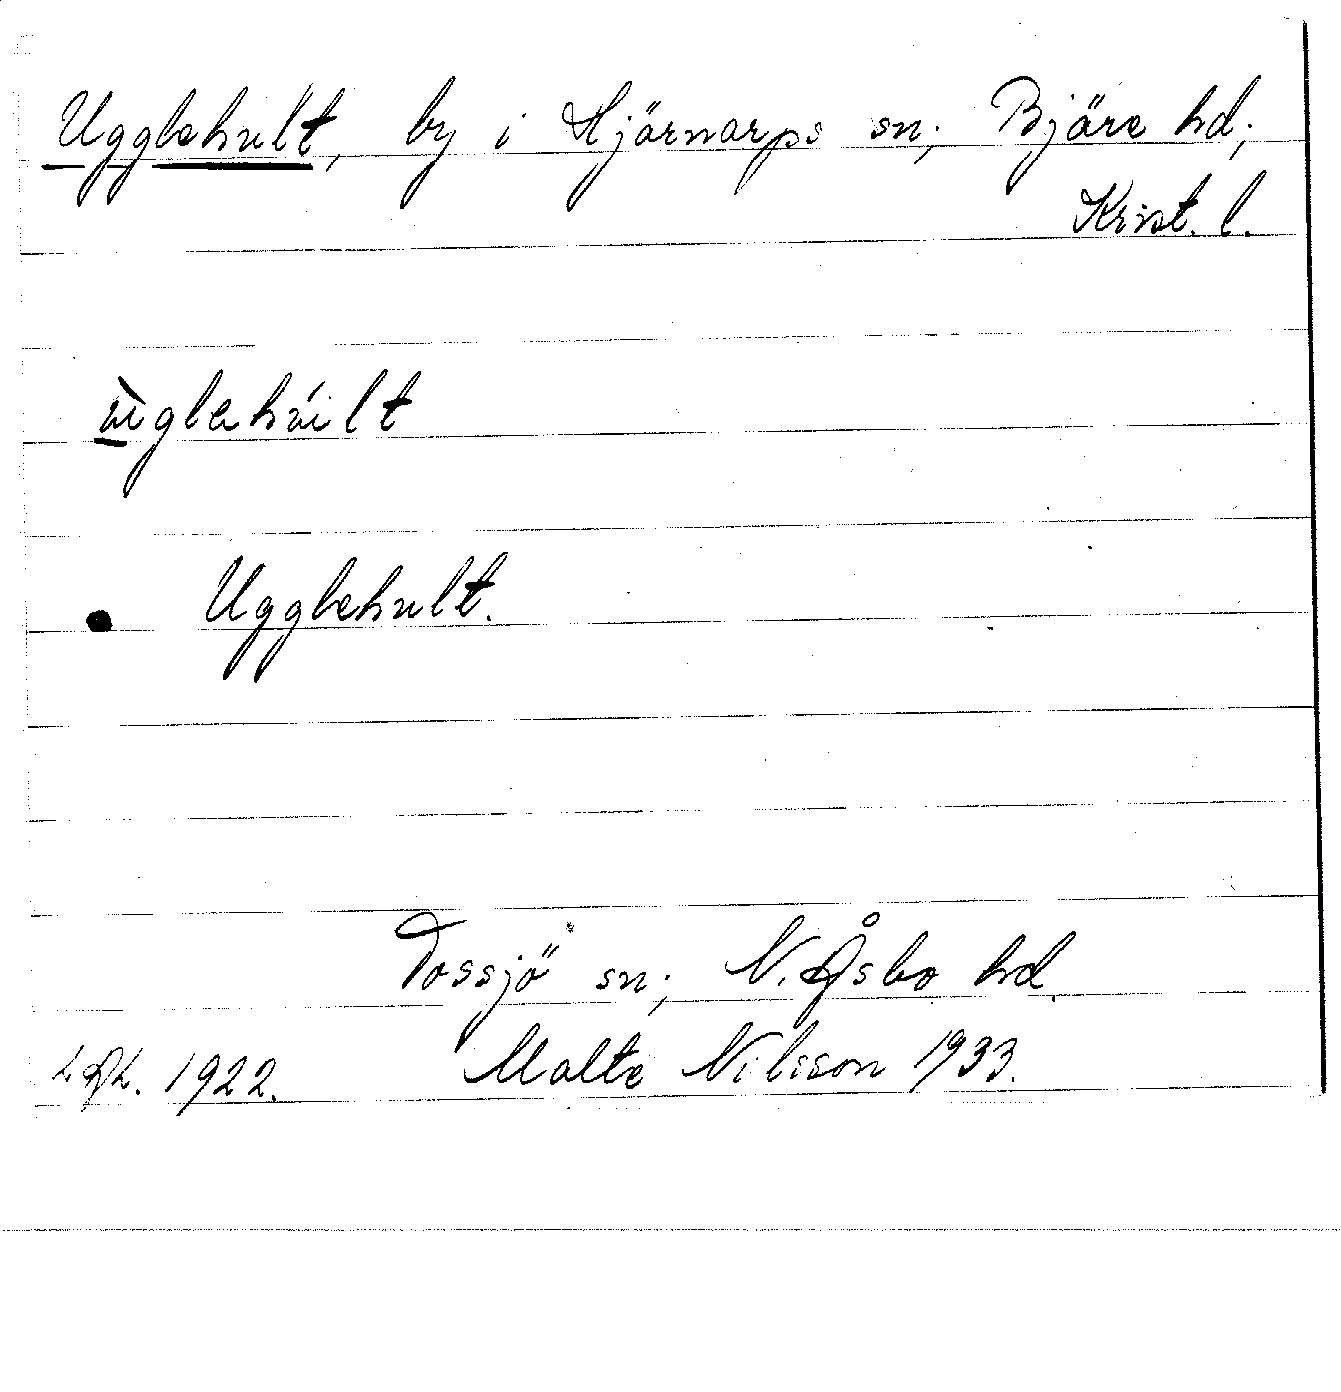 Ugglehult, by i Hjärnarps sn; Bjäre hd;
Krist. l.
ùglehúlt
Ugglehult.
Tossjö sn; N. Åsbo hd.
1922. Malte Nilsson 1933.